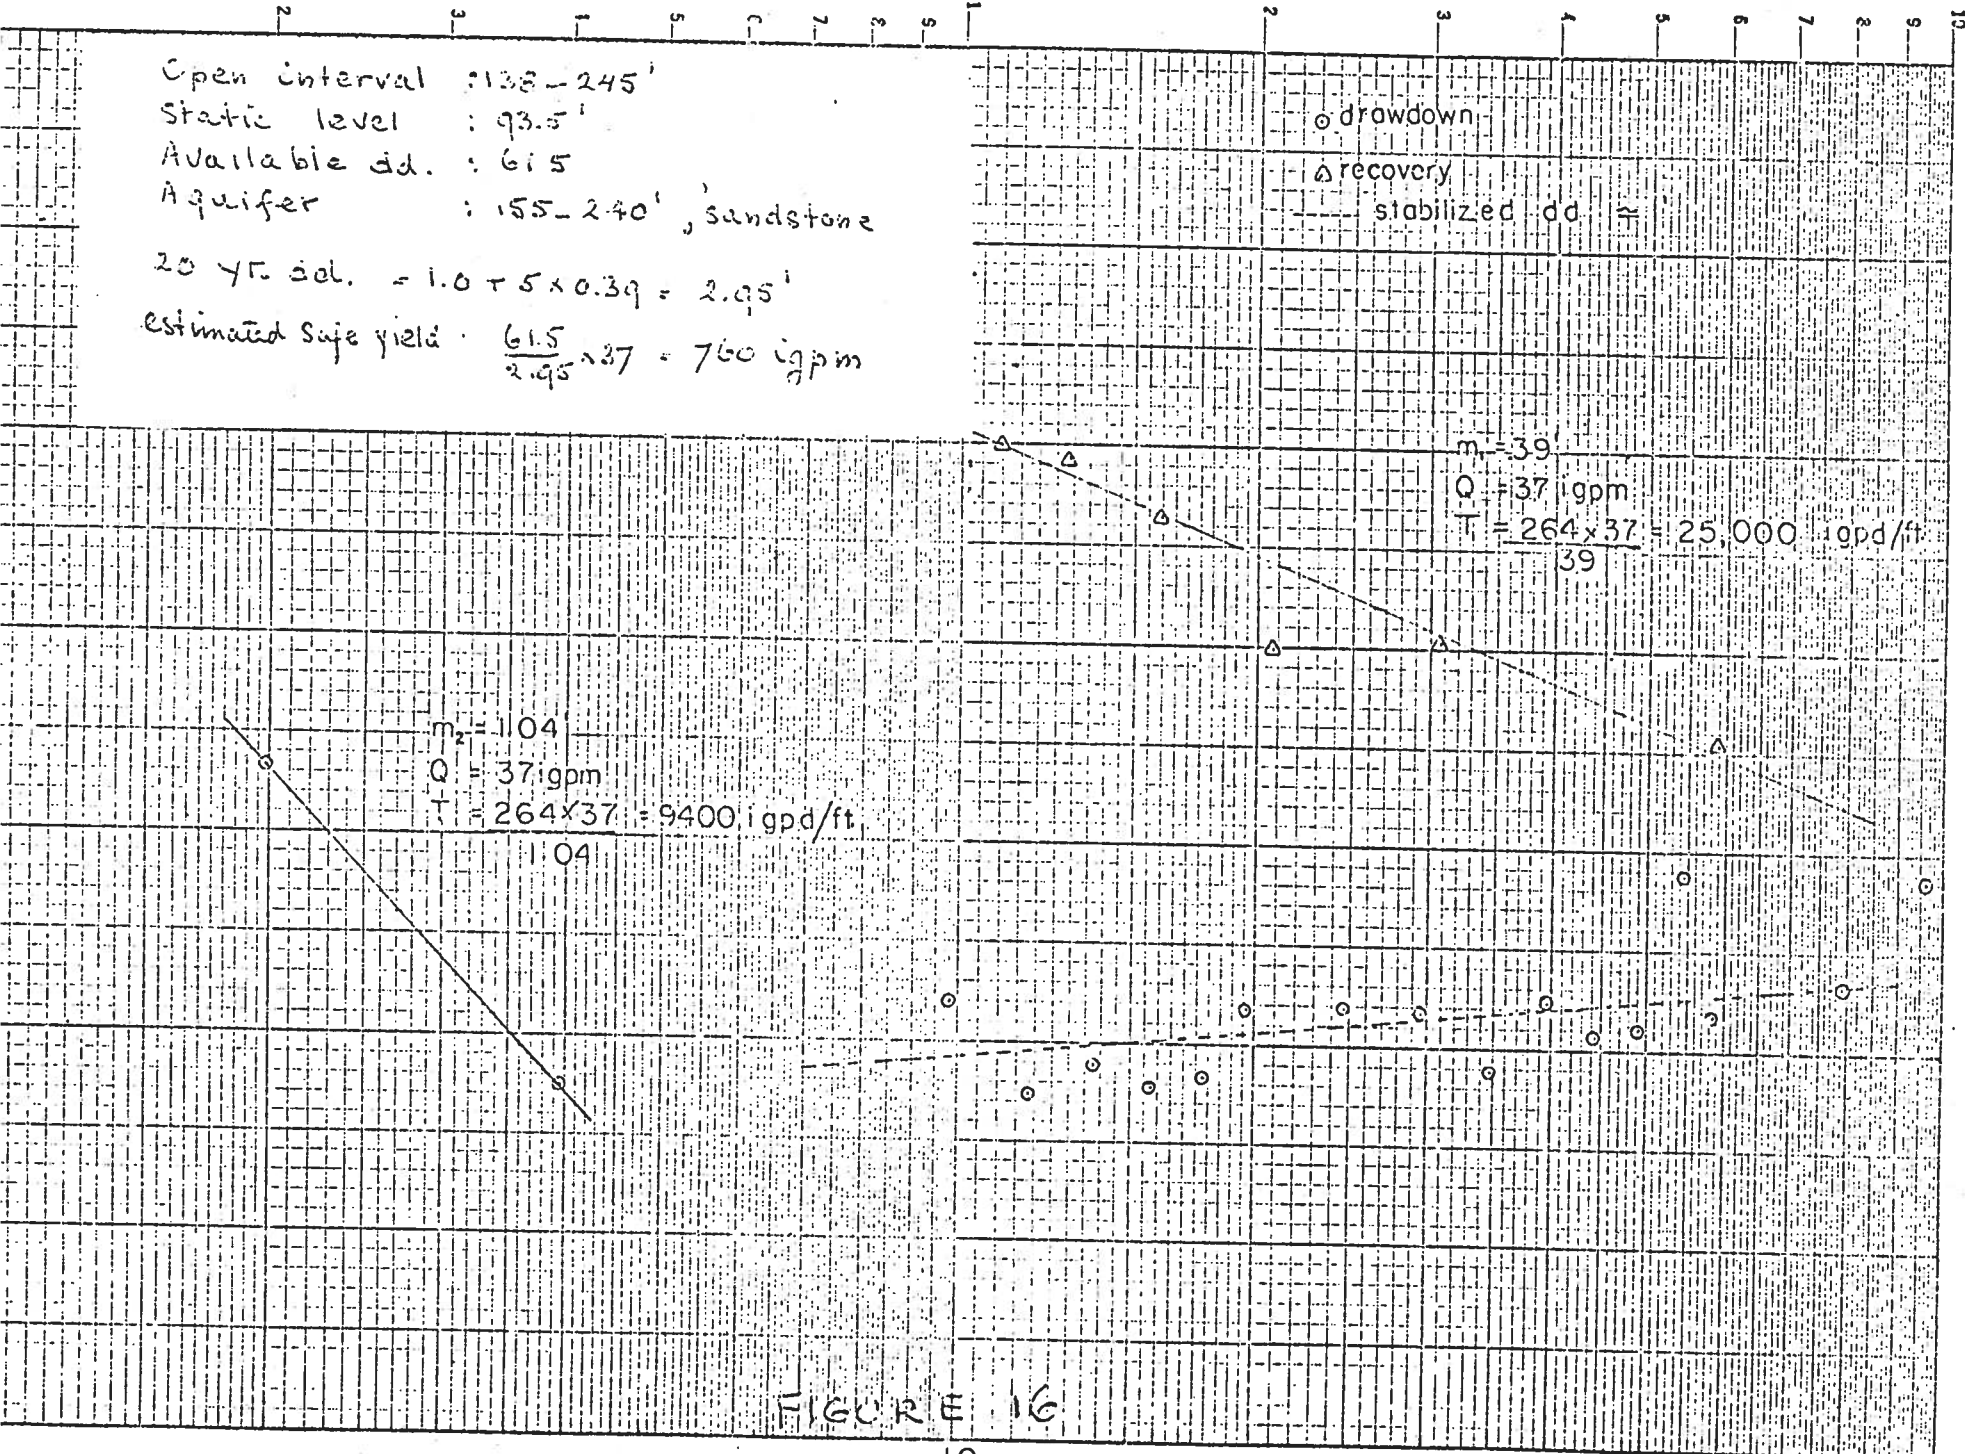 2 3 4 5 6 7 8 9 1 2 3 4 5 6 7 8 9 10
Open interval : 138 - 245'
Static level : 93.5'
Available dd. : 61.5
Aquifer : 155 - 240', sandstone
20 yr. dd. = 1.0 + 5 x 0.39 = 2.95'
estimated safe yield . 61.5
2.95 x 37 = 760 igpm
drawdown
recovery
stabilized dd
m₁ = .39'
Q = 37 igpm
T = 264 x 37 = 25,000 igpd/ft
.39
m₂ = 1.04'
Q = 37 igpm
T = 264 x 37 = 9400 igpd/ft
1.04
FIGURE 16
10